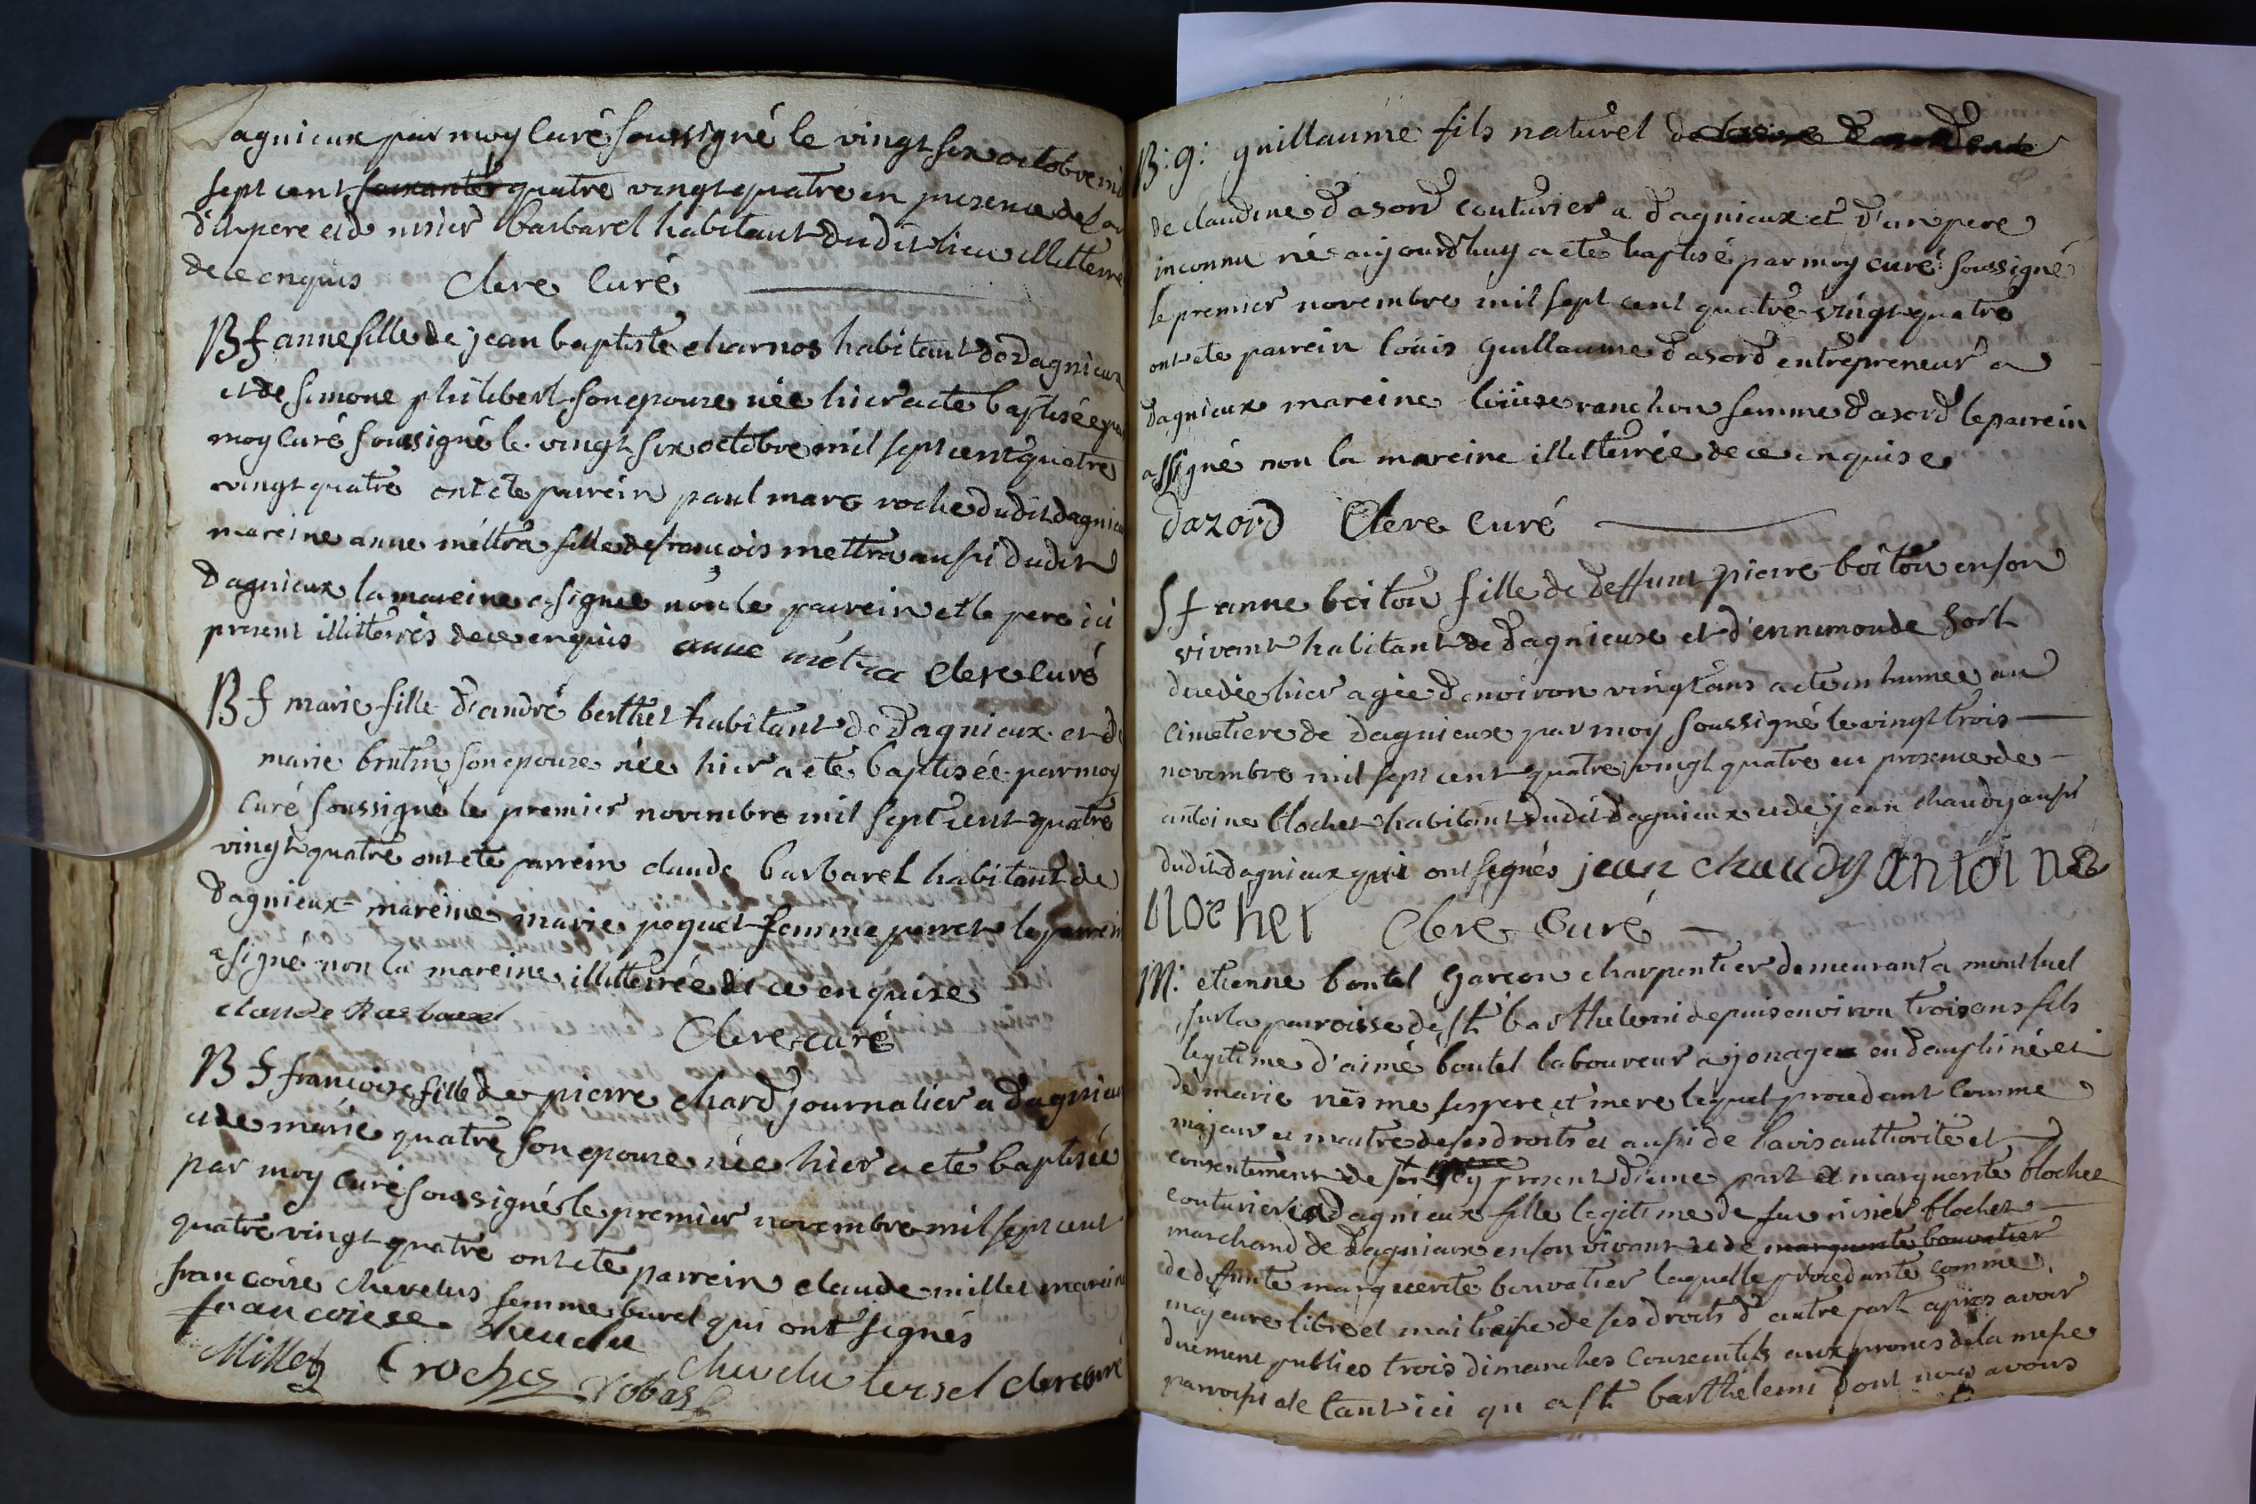 dagnieux par moy Curé soussigné le vingt six octobre mil
sept cent soixante quatre vingt quatre en presence de
d'un pere et de nisier barbarel habitant dudit lieu illiterré
de ce enquis Clere Curé
B f anne fille de jean baptiste charnos habitant de Dagnieux
et de simone philibert son epouse née hier a ete baptisée par
moy Curé soussigné le vingt six octobre mil sept cent quatre
vingt quatre ont ete parrein paul marc roche dudit dagnieux
mareine anne mèttra fille de françois mettra aussi dudit
Dagnieux la mareine a signée non le parrein et le pere ici
present illiterrés de ce enquis anne métra Clere Curé
B f marie fille d'andré berthet habitant de Dagnieux et de
marie brutin son epouse née hier a ete baptisée par moy
Curé soussigné le premier novembre mil sept cent quatre
vingt quatre ont ete parrein claude barbarel habitant de
Dagnieux mareine marie poquet femme perret le parrein
a signé non la mareine illiterrée de ce enquise
claude Barbarel
Clere curé
B f françoise fille de pierre chard journalier a Dagnieux
et de marie quatre son epouse née hier a ete baptisée
par moy Curé soussigné le premier novembre mil sept cent
quatre vingt quatre ont ete parrein claude millet mareine
francoise chevelus femme burel qui ont signés
francoise cheuelu
Millet Croches chevelu Clere curé
B: g: guillaume fils naturel de
de claudine d'asord couturier a dagnieux et d'un pere
inconnu né aujourd'huy a ete baptisé par moy curé soussigné
le premier novembre mil sept cent quatre vingt quatre
ont ete parrein louis guillaume dasord entrepreneur a
dagnieux mareine louise ranchon femme dasord le parrein
a signé non la mareine illiterrée de ce enquise
dazord Clere Curé
S f anne boiton fille de deffunt pierre boiton en son
vivant habitant de dagnieux et d'ennemonde sort
decedée hier agée d'environ vingt ans a ete inhumee au
cimetiere de Dagnieux par moy soussigné le vingt trois
novembre mil sept cent quatre vingt quatre en presence de
antoine blochet habitant dudit dagnieux et de jean chaudy aussi
dudit dagnieux qui ont signés jean chaudy antoine
blochet Clere Curé
M: etienne boutel garçon charpentier demeurant a montluel
sur la parroisse de st barthelemi depuis environ trois ans fils
legitime d'aimé boutel laboureur a jonage en dauphiné et
de marie nêsme ses pere et mere lequel procedant comme
majeur et maitre de ses droits et aussi de l'avis authorité et
consentement de son pere cy present d'une part et marguerite blochet
couturiere a Dagnieux fille legitime de feu nisier blochet
marchand de Dagnieux en son vivant et de marguerite bouvatier
de deffunte marguerite bouvatier laquelle procedante comme
majeure libre et maitresse de ses droits d'autre part apres avoir
duement publiés trois dimanches consecutifs aux prones de la messe
parroissiale tant ici qu a st barthélemi dont nous avons